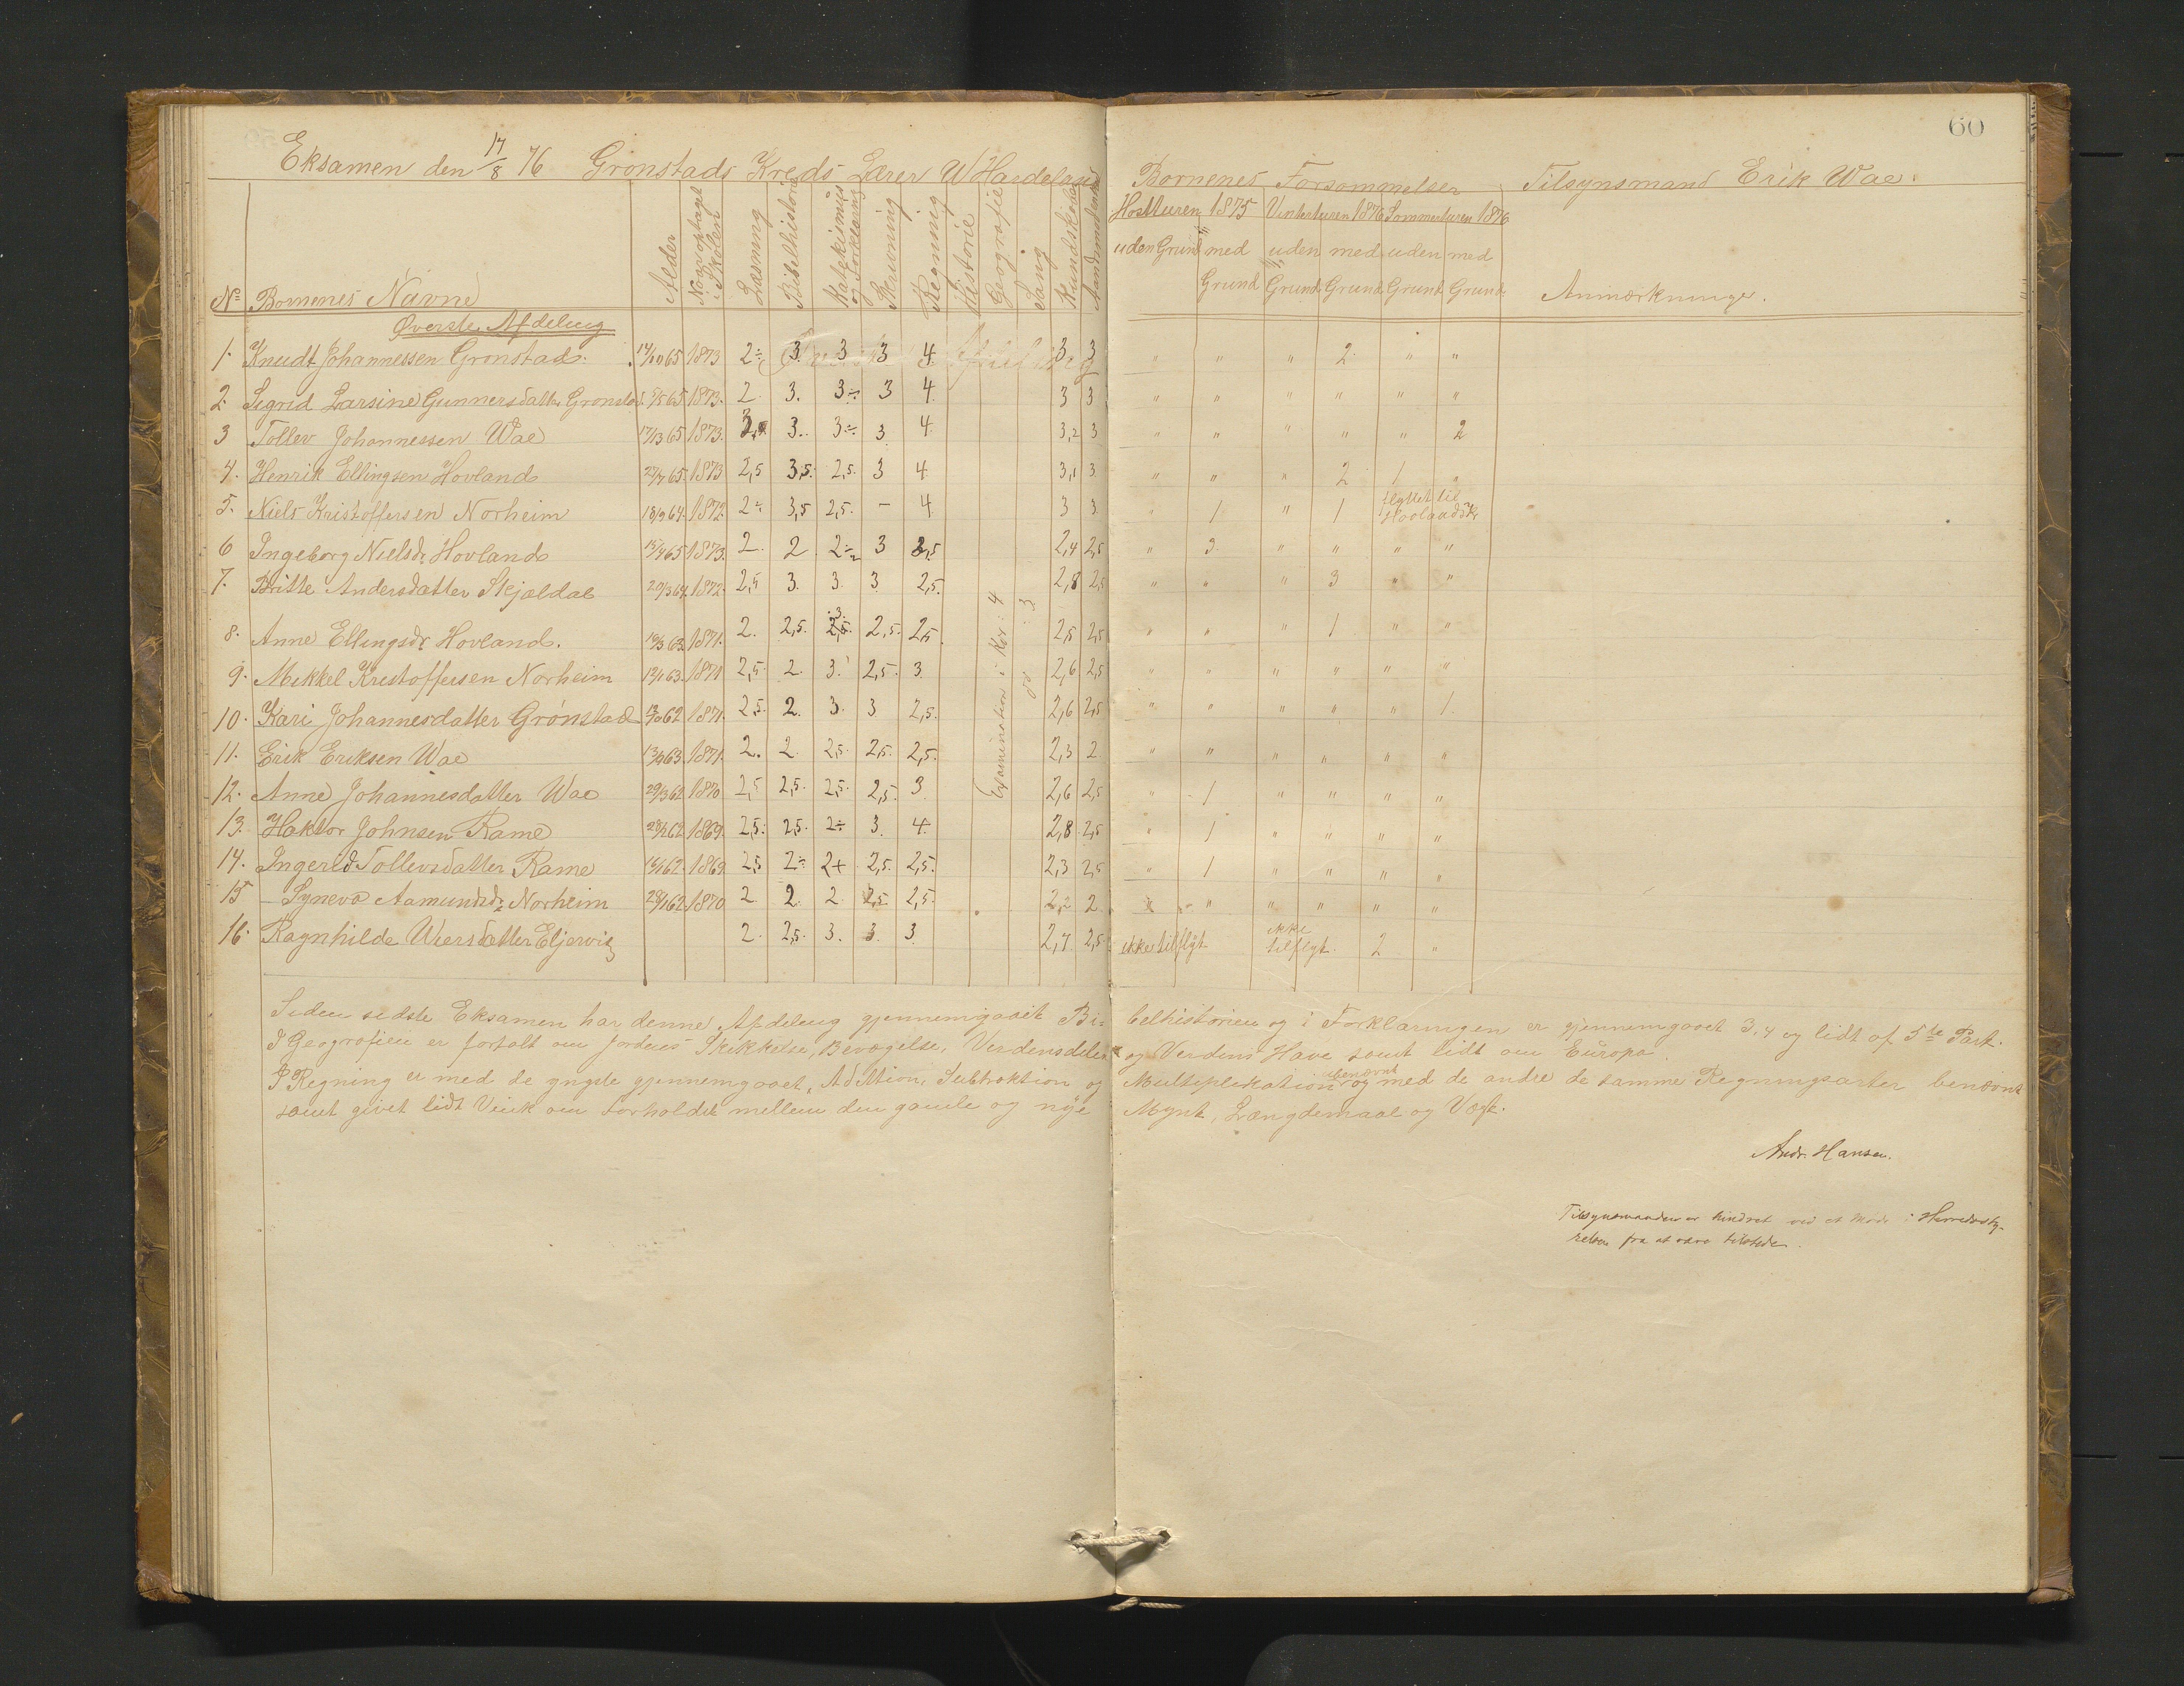 60
Eksamen den 17/8 76 Grønstads Kreds Lærer W Hardeland
Børnenes Forsømmelser Tilsynsmand Erik Wae.
Høstturen 1875 Vinterturen 1876 Sommerturen 1876
uden Grund med Grund uden Grund med Grund uden Grund med Grund Anmærkninger.
No Børnenes Navne Alder Naar optaget i Skolen Læsning Bibelhistorie Katekismus og Forklaring Skrivning Regning Historie Geografie Sang Kundskaber
Øverste Afdeling
1. Knudt Johannessen Grønstad. 14/10 65 1873 2÷ 3. 3 3 4. 3 3 " " " 2. " "
2. Sigrid Larsine Gunnersdatter Grønstad. 5/5 65 1873. 2. 3. 3÷ 3 4. 3 3 " " " " " "
3 Tollev Johannessen Wae 1873. 3.. 3÷ 3 4. 3,2 3 " " " " " 2
4. Henrik Ellingsen Hovland 27/7 65. 1873 2,5 3,5. 2,5. 3 4. 3,1 3. " " " 2 1 "
5. Niels Kristoffersen Norheim 18/9 64. 1872. 2÷ 3,5 2,5. – 4 3 3. " 1 " 1 flyttet til Hovlandskr
6 Ingeborg Nielsdr Hovland 15/7 65 1873. 2. 2. 2÷ 3 2,5 2,4 2,5 " 3 " " " "
7. Britte Andersdatter Skjældal 20/3 64. 1872. 2,5 3. 3. 3. 2,5. 2,8 2,5 " " " 3 " "
8. Anne Ellingsdr Hovland. 19/3 63. 1871. 2. 2,5. 3. 2,5. 2,5. 2,5 2,5 " " " 1 " "
9. Mikkel Kristoffersen Norheim 13/1 63. 1871 2,5. 2. 3. 2,5. 3. 2,6 2,5 " " " " " "
10. Kari Johannesdatter Grønstad 1871. 2,5. 2. 3. 3 2,5. 2,6 2,5 " " " " " 1.
11. Erik Eriksen Wae 1871. 2. 2. 2,5. 2,5. 2,5. 2,3 2. " " " " " "
12. Anne Johannesdatter Wae 29/3 62 1870 2,5 2,5. 2,5. 2,5. 3. 2,6 2,5 " 1 " " " "
13. Haktor Johnsen Rame 28/2 62. 1869. 2,5. 2,5. 2÷ 3. 4. 2,8 2,5 " 1 " " " "
14. Ingerid Tollevsdatter Rame 1869. 2,5 2÷ 2+ 2,5. 2,5. 2,3 2,5 " 1 " " " "
15 Synevø Aamundsdr Norheim 28/1 62. 1870 2 2. 2. 2,5 2,5. 2,2 2. " " " " " "
16. Ragnhilde Wiersdatter Eljervig 2. 2,5. 3. 3. 3. 2,7. 2,5. ikke tilflyt. ikke tilflyt. 2 "
Examination i Kor: 4
do : 3
Siden sidste Eksamen har denne Afdeling gjennemgaaet Bibelhistorien og i Forklaringen er gjennemgaaet 3, 4 og lidt af 5te Part.
I Geografien er fortalt om Jordens Skikkelse, Bevægelse, Verdensdele og Verdens Have samt lidt om Europa.
I Regning er med de yngste gjennemgaaet, Addition, Subtraktion og Multiplikation ubenævnt og med de andre de samme Regningsarter benævnt
samt givet lidt Vink om Forholdet mellem den gamle og nye Mynt, Længdemaal og Vægt.
Andr. Hansen.
Tilsynsmanden er hindret ved et Møde i Herredssty-
relsen fra at være tilstede.